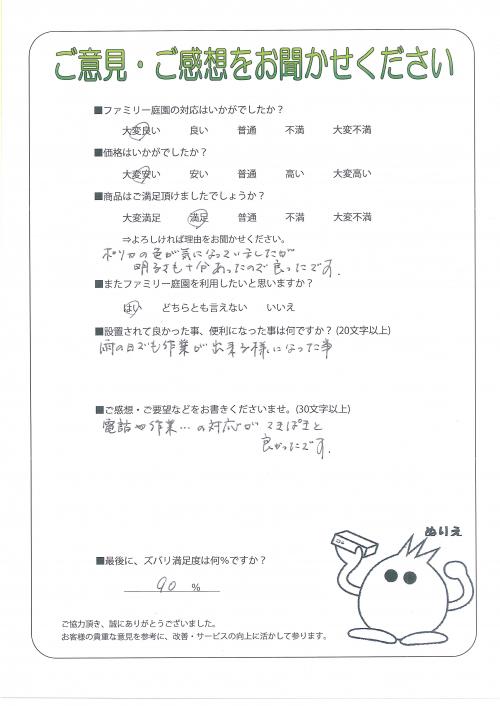 ご意見・ご感想をお聞かせください
■ファミリー庭園の対応はいかがでしたか？
大変良い 良い 普通 不満 大変不満
■価格はいかがでしたか？
大変安い 安い 普通 高い 大変高い
■商品はご満足頂けましたでしょうか？
大変満足 満足 普通 不満 大変不満
⇒よろしければ理由をお聞かせください。
ポリカの色が気になっていましたが
明るさも十分あったので良ったです.
■またファミリー庭園を利用したいと思いますか？
はい どちらとも言えない いいえ
■設置されて良かった事、便利になった事は何ですか？(20文字以上)
雨の日でも作業が出来る様になった事
■ご感想・ご要望などをお書きくださいませ。(30文字以上)
電話や作業…の対応がてきぱきと
良かったです.
ぬりえ
■最後に、ズバリ満足度は何％ですか？
90 %
ご協力頂き、誠にありがとうございました。
お客様の貴重な意見を参考に、改善・サービスの向上に活かして参ります。